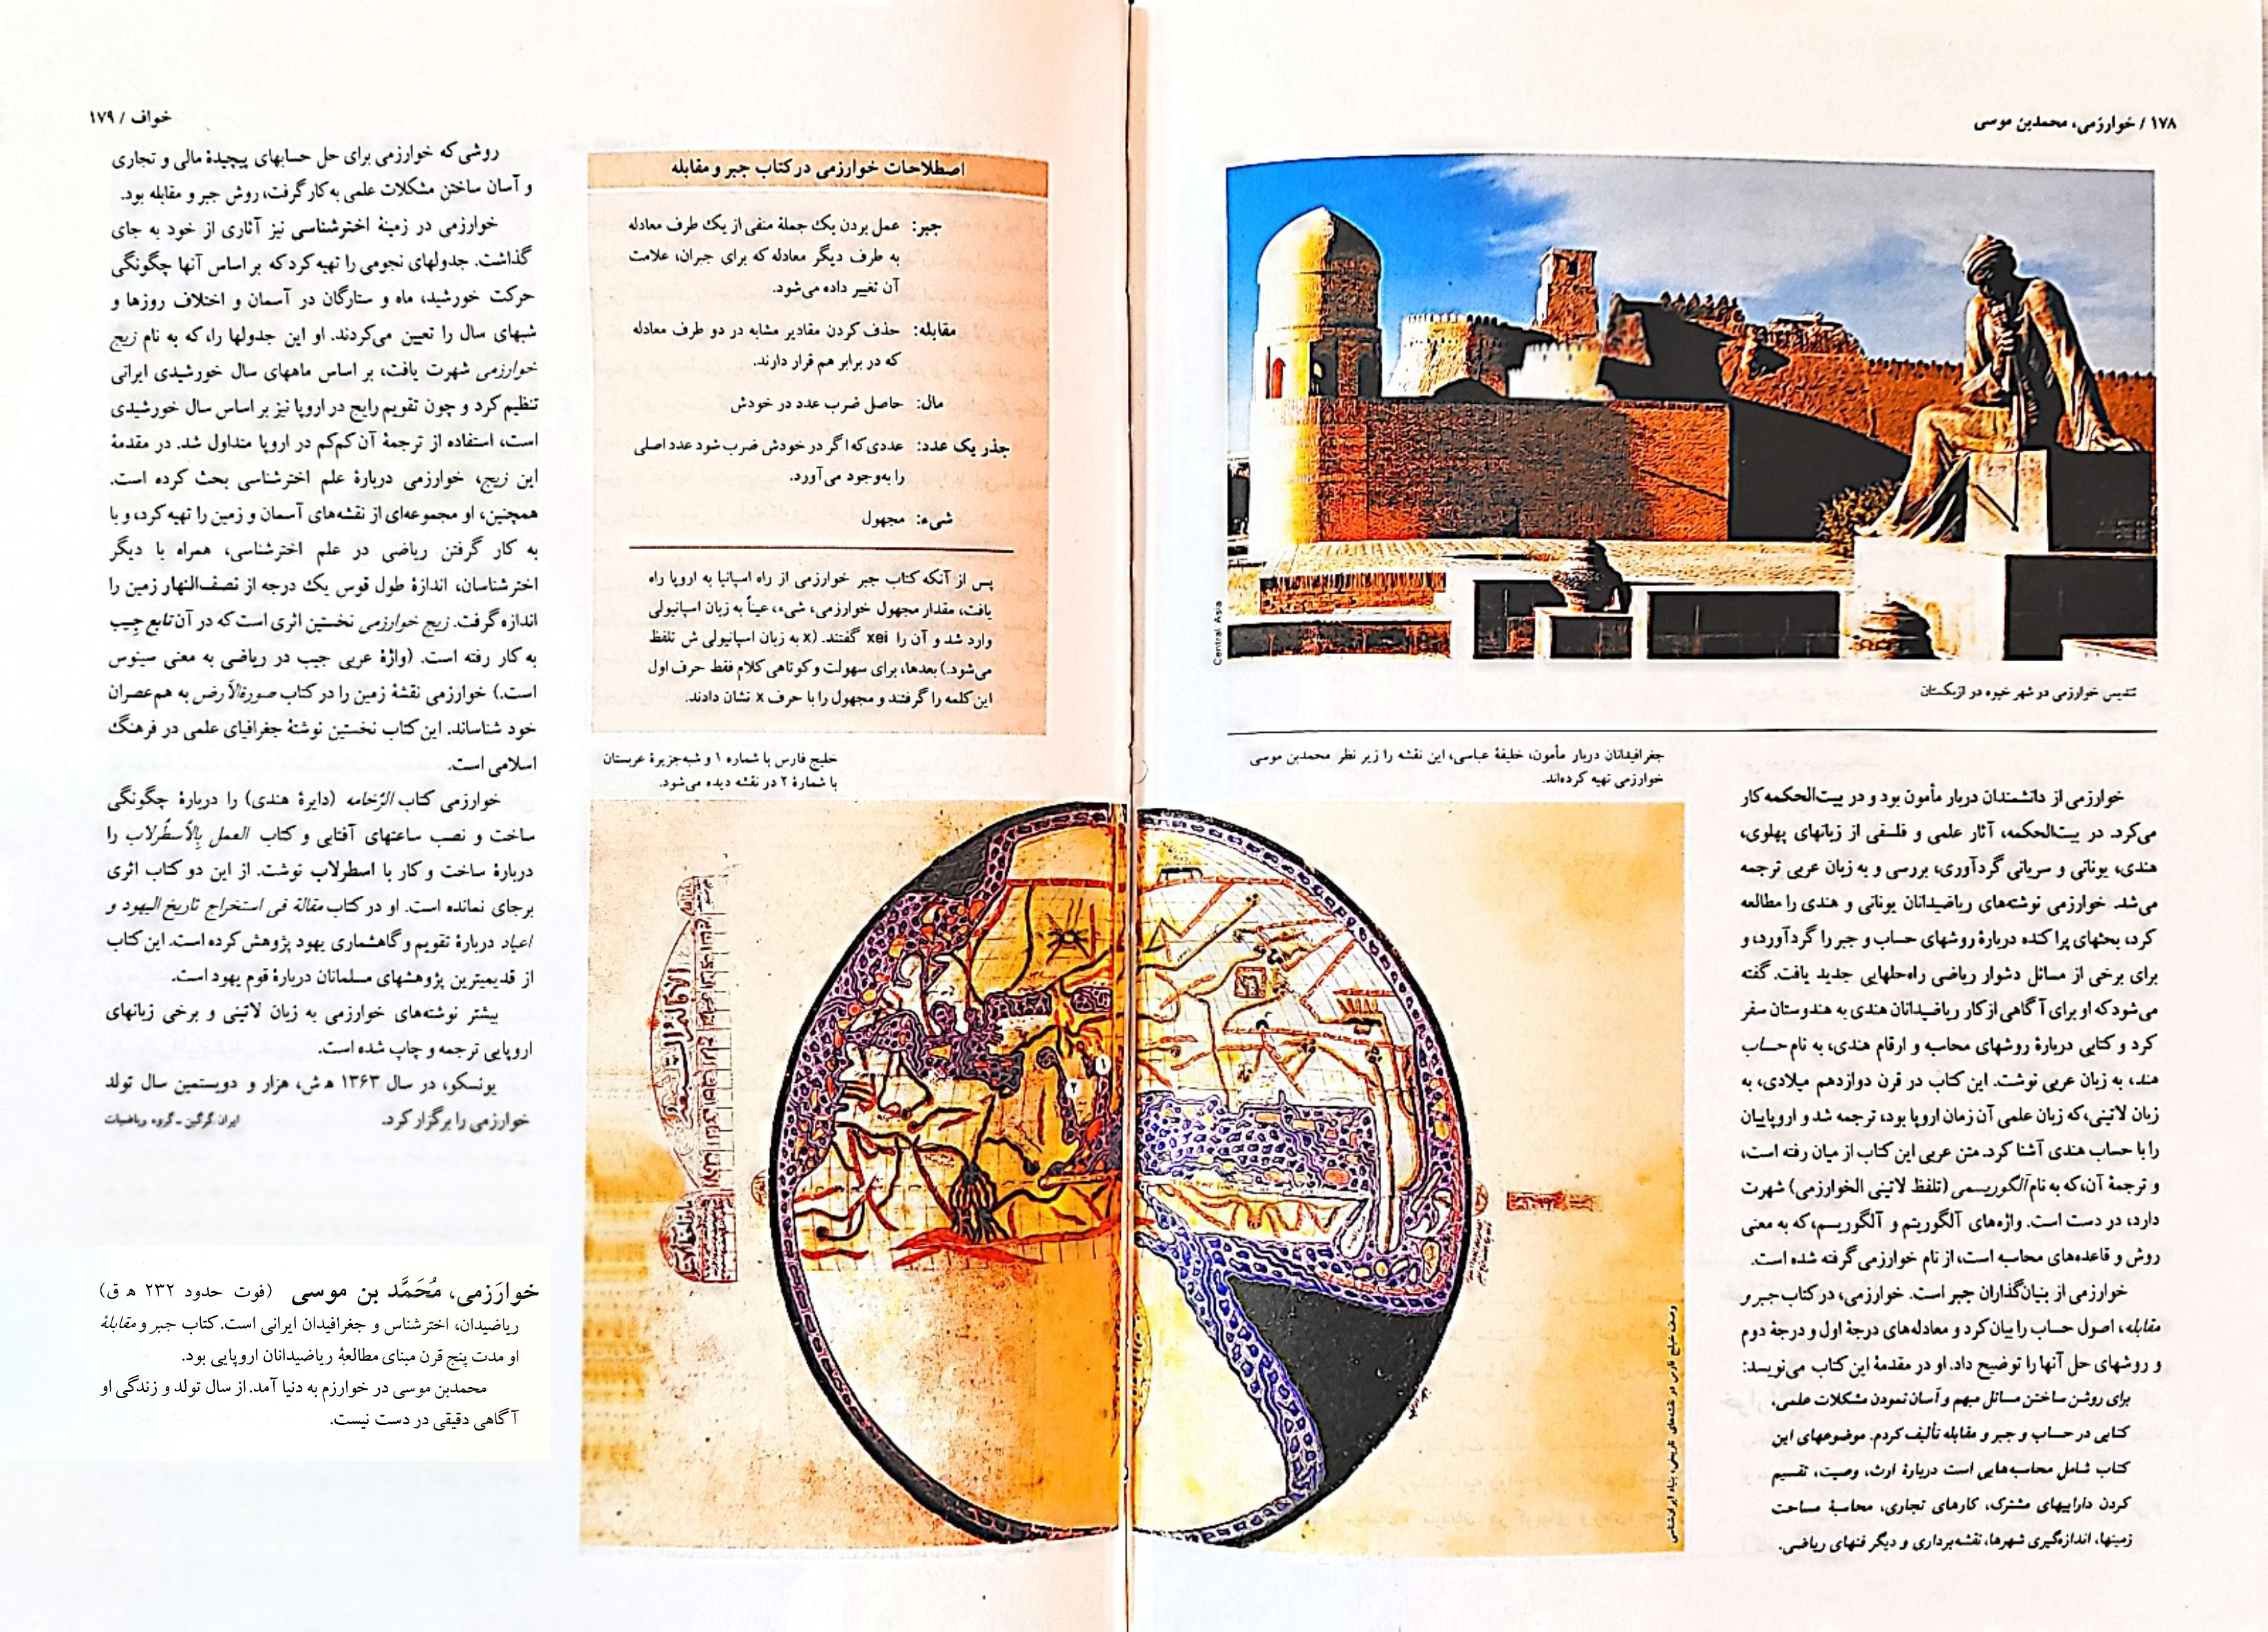 ۱۷۸ / خوارزمی، محمدبن موسی
Central Asia
تندیس خوارزمی در شهر خیوه در ازبکستان
جغرافیدانان دربار مأمون، خلیفهٔ عباسی، این نقشه را زیر نظر محمدبن موسی
خوارزمی تهیه کرده‌اند.
خوارزمی از دانشمندان دربار مأمون بود و در بیت‌الحکمه کار
می‌کرد. در بیت‌الحکمه، آثار علمی و فلسفی از زبانهای پهلوی،
هندی، یونانی و سریانی گردآوری، بررسی و به زبان عربی ترجمه
می‌شد. خوارزمی نوشته‌های ریاضیدانان یونانی و هندی را مطالعه
کرد، بحثهای پراکنده دربارهٔ روشهای حساب و جبر را گردآورد، و
برای برخی از مسائل دشوار ریاضی راه‌حلهایی جدید یافت. گفته
می‌شود که او برای آگاهی از کار ریاضیدانان هندی به هندوستان سفر
کرد و کتابی دربارهٔ روشهای محاسبه و ارقام هندی، به نام حساب
هند، به زبان عربی نوشت. این کتاب در قرن دوازدهم میلادی، به
زبان لاتینی، که زبان علمی آن زمان اروپا بود، ترجمه شد و اروپاییان
را با حساب هندی آشنا کرد. متن عربی این کتاب از میان رفته است،
و ترجمهٔ آن، که به نام آلگوریسمی (تلفظ لاتینی الخوارزمی) شهرت
دارد، در دست است. واژه‌های آلگوریتم و آلگوریسم، که به معنی
روش و قاعده‌های محاسبه است، از نام خوارزمی گرفته شده است.
خوارزمی از بنیان‌گذاران جبر است. خوارزمی، در کتاب جبر و
مقابله، اصول حساب را بیان کرد و معادله‌های درجهٔ اول و درجهٔ دوم
و روشهای حل آنها را توضیح داد. او در مقدمهٔ این کتاب می‌نویسد:
برای روشن ساختن مسائل مبهم و آسان نمودن مشکلات علمی،
کتابی در حساب و جبر و مقابله تألیف کردم. موضوعهای این
کتاب شامل محاسبه‌هایی است دربارهٔ ارث، وصیت، تقسیم
کردن داراییهای مشترک، کارهای تجاری، محاسبهٔ مساحت
زمینها، اندازه‌گیری شهرها، نقشه‌برداری و دیگر فنهای ریاضی.
وصف خلیج فارس در نقشه‌های تاریخی، بنیاد ایران‌شناسی
خواف / ۱۷۹
اصطلاحات خوارزمی در کتاب جبر و مقابله
جبر: عمل بردن یک جملهٔ منفی از یک طرف معادله
به طرف دیگر معادله که برای جبران، علامت
آن تغییر داده می‌شود.
مقابله: حذف کردن مقادیر مشابه در دو طرف معادله
که در برابر هم قرار دارند.
مال: حاصل ضرب عدد در خودش
جذر یک عدد: عددی که اگر در خودش ضرب شود عدد اصلی
را به‌وجود می‌آورد.
شیء: مجهول
پس از آنکه کتاب جبر خوارزمی از راه اسپانیا به اروپا راه
یافت، مقدار مجهول خوارزمی، شیء، عیناً به زبان اسپانیولی
وارد شد و آن را xei گفتند. (x به زبان اسپانیولی ش تلفظ
می‌شود.) بعدها، برای سهولت و کوتاهی کلام فقط حرف اول
این کلمه را گرفتند و مجهول را با حرف x نشان دادند.
خلیج فارس با شماره ۱ و شبه‌جزیرهٔ عربستان
با شمارهٔ ۲ در نقشه دیده می‌شود.
۱
۲
روشی که خوارزمی برای حل حسابهای پیچیدهٔ مالی و تجاری
و آسان ساختن مشکلات علمی به کار گرفت، روش جبر و مقابله بود.
خوارزمی در زمینهٔ اخترشناسی نیز آثاری از خود به جای
گذاشت. جدولهای نجومی را تهیه کرد که بر اساس آنها چگونگی
حرکت خورشید، ماه و ستارگان در آسمان و اختلاف روزها و
شبهای سال را تعیین می‌کردند. او این جدولها را، که به نام زیج
خوارزمی شهرت یافت، بر اساس ماههای سال خورشیدی ایرانی
تنظیم کرد و چون تقویم رایج در اروپا نیز بر اساس سال خورشیدی
است، استفاده از ترجمهٔ آن کم‌کم در اروپا متداول شد. در مقدمهٔ
این زیج، خوارزمی دربارهٔ علم اخترشناسی بحث کرده است.
همچنین، او مجموعه‌ای از نقشه‌های آسمان و زمین را تهیه کرد، و با
به کار گرفتن ریاضی در علم اخترشناسی، همراه با دیگر
اخترشناسان، اندازهٔ طول قوس یک درجه از نصف‌النهار زمین را
اندازه گرفت. زیج خوارزمی نخستین اثری است که در آن تابع جِیب
به کار رفته است. (واژهٔ عربی جیب در ریاضی به معنی سینوس
است.) خوارزمی نقشهٔ زمین را در کتاب صورةالأرض به هم‌عصران
خود شناساند. این کتاب نخستین نوشتهٔ جغرافیای علمی در فرهنگ
اسلامی است.
خوارزمی کتاب الرُخامه (دایرهٔ هندی) را دربارهٔ چگونگی
ساخت و نصب ساعتهای آفتابی و کتاب العمل بِالأسطُرلاب را
دربارهٔ ساخت و کار با اسطرلاب نوشت. از این دو کتاب اثری
برجای نمانده است. او در کتاب مقالة فی استخراج تاریخ الیهود و
اعیاد دربارهٔ تقویم و گاهشماری یهود پژوهش کرده است. این کتاب
از قدیمیترین پژوهشهای مسلمانان دربارهٔ قوم یهود است.
بیشتر نوشته‌های خوارزمی به زبان لاتینی و برخی زبانهای
اروپایی ترجمه و چاپ شده است.
یونسکو، در سال ۱۳۶۳ ه‍ ش، هزار و دویستمین سال تولد
خوارزمی را برگزار کرد. ایران گرگین ـ گروه ریاضیات
خوارَزمی، مُحَمَّد بن موسی (فوت حدود ۲۳۲ ه‍ ق)
ریاضیدان، اخترشناس و جغرافیدان ایرانی است. کتاب جبر و مقابلهٔ
او مدت پنج قرن مبنای مطالعهٔ ریاضیدانان اروپایی بود.
محمدبن موسی در خوارزم به دنیا آمد. از سال تولد و زندگی او
آگاهی دقیقی در دست نیست.